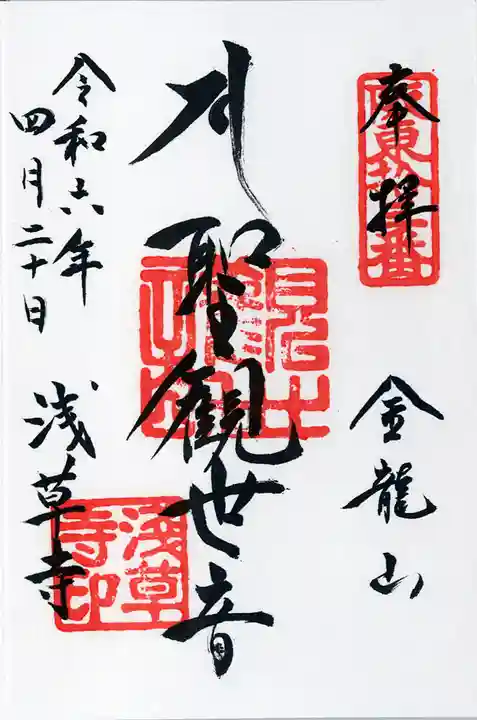 奉拝
坂東拾三番
金龍山
聖観世音
令和六年
四月二十日
浅草寺
浅草寺印